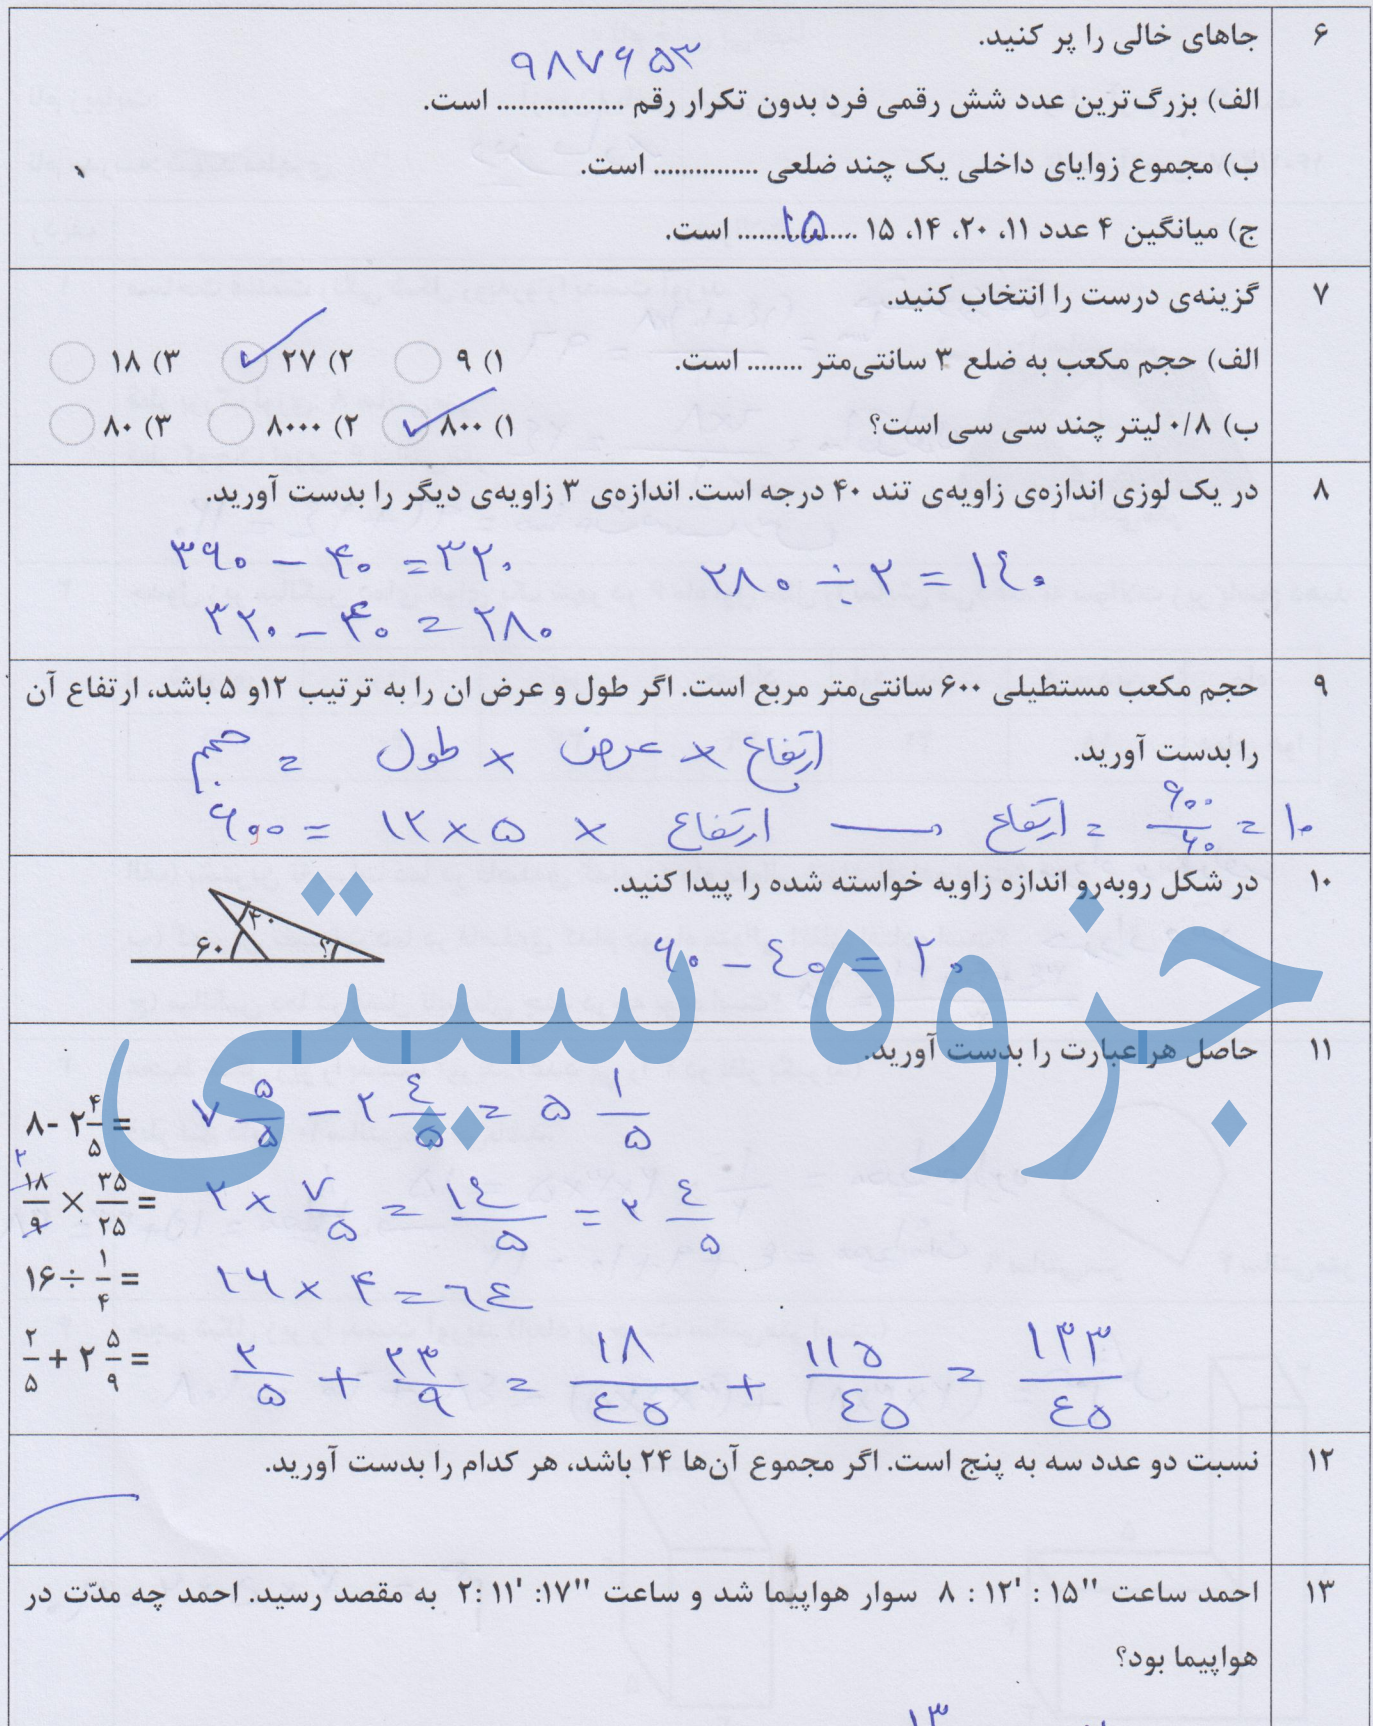 ۶
جاهای خالی را پر کنید.
۹۸۷۶۵۳
الف) بزرگ‌ترین عدد شش رقمی فرد بدون تکرار رقم .................. است.
ب) مجموع زوایای داخلی یک چند ضلعی ............... است.
ج) میانگین ۴ عدد ۱۱، ۲۰، ۱۴، ۱۵ ........۱۵........ است.
۷
گزینه‌ی درست را انتخاب کنید.
الف) حجم مکعب به ضلع ۳ سانتی‌متر ........ است. ۱) ۹ ۲) ۲۷ ✓ ۳) ۱۸
ب) ۰/۸ لیتر چند سی سی است؟ ۱) ۸۰۰ ✓ ۲) ۸۰۰۰ ۳) ۸۰
۸
در یک لوزی اندازه‌ی زاویه‌ی تند ۴۰ درجه است. اندازه‌ی ۳ زاویه‌ی دیگر را بدست آورید.
۳۶۰ − ۴۰ = ۳۲۰
۳۲۰ − ۴۰ = ۲۸۰
۲۸۰ ÷ ۲ = ۱۴۰
۹
حجم مکعب مستطیلی ۶۰۰ سانتی‌متر مربع است. اگر طول و عرض ان را به ترتیب ۱۲و ۵ باشد، ارتفاع آن
را بدست آورید.
حجم = طول × عرض × ارتفاع
۶۰۰ = ۱۲ × ۵ × ارتفاع → ارتفاع = ۶۰۰/۶۰ = ۱۰
۱۰
در شکل روبه‌رو اندازه زاویه خواسته شده را پیدا کنید.
۴۰
۶۰
؟
۶۰ − ۴۰ = ۲۰
جزوه سیتی
۱۱
حاصل هر عبارت را بدست آورید.
۸ - ۲ ۴/۵ = ۷ ۵/۵ − ۲ ۴/۵ = ۵ ۱/۵
۲
۱۸/۹ × ۳۵/۲۵ = ۲ × ۷/۵ = ۱۴/۵ = ۲ ۴/۵
۱۶ ÷ ۱/۴ = ۱۶ × ۴ = ۶۴
۲/۵ + ۲ ۵/۹ = ۲/۵ + ۲۳/۹ = ۱۸/۴۵ + ۱۱۵/۴۵ = ۱۳۳/۴۵
۱۲
نسبت دو عدد سه به پنج است. اگر مجموع آن‌ها ۲۴ باشد، هر کدام را بدست آورید.
۱۳
احمد ساعت ''۱۵ : '۱۲ : ۸ سوار هواپیما شد و ساعت ''۱۷: '۱۱ :۲ به مقصد رسید. احمد چه مدّت در
هواپیما بود؟
۱۳